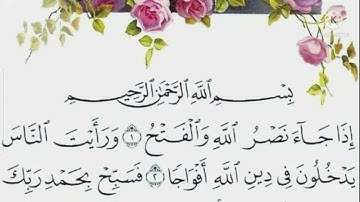 بِسْمِ ٱللَّهِ ٱلرَّحْمَٰنِ ٱلرَّحِيمِ
إِذَا جَآءَ نَصْرُ ٱللَّهِ وَٱلْفَتْحُ ١ وَرَأَيْتَ ٱلنَّاسَ
يَدْخُلُونَ فِى دِينِ ٱللَّهِ أَفْوَاجًا ٢ فَسَبِّحْ بِحَمْدِ رَبِّكَ